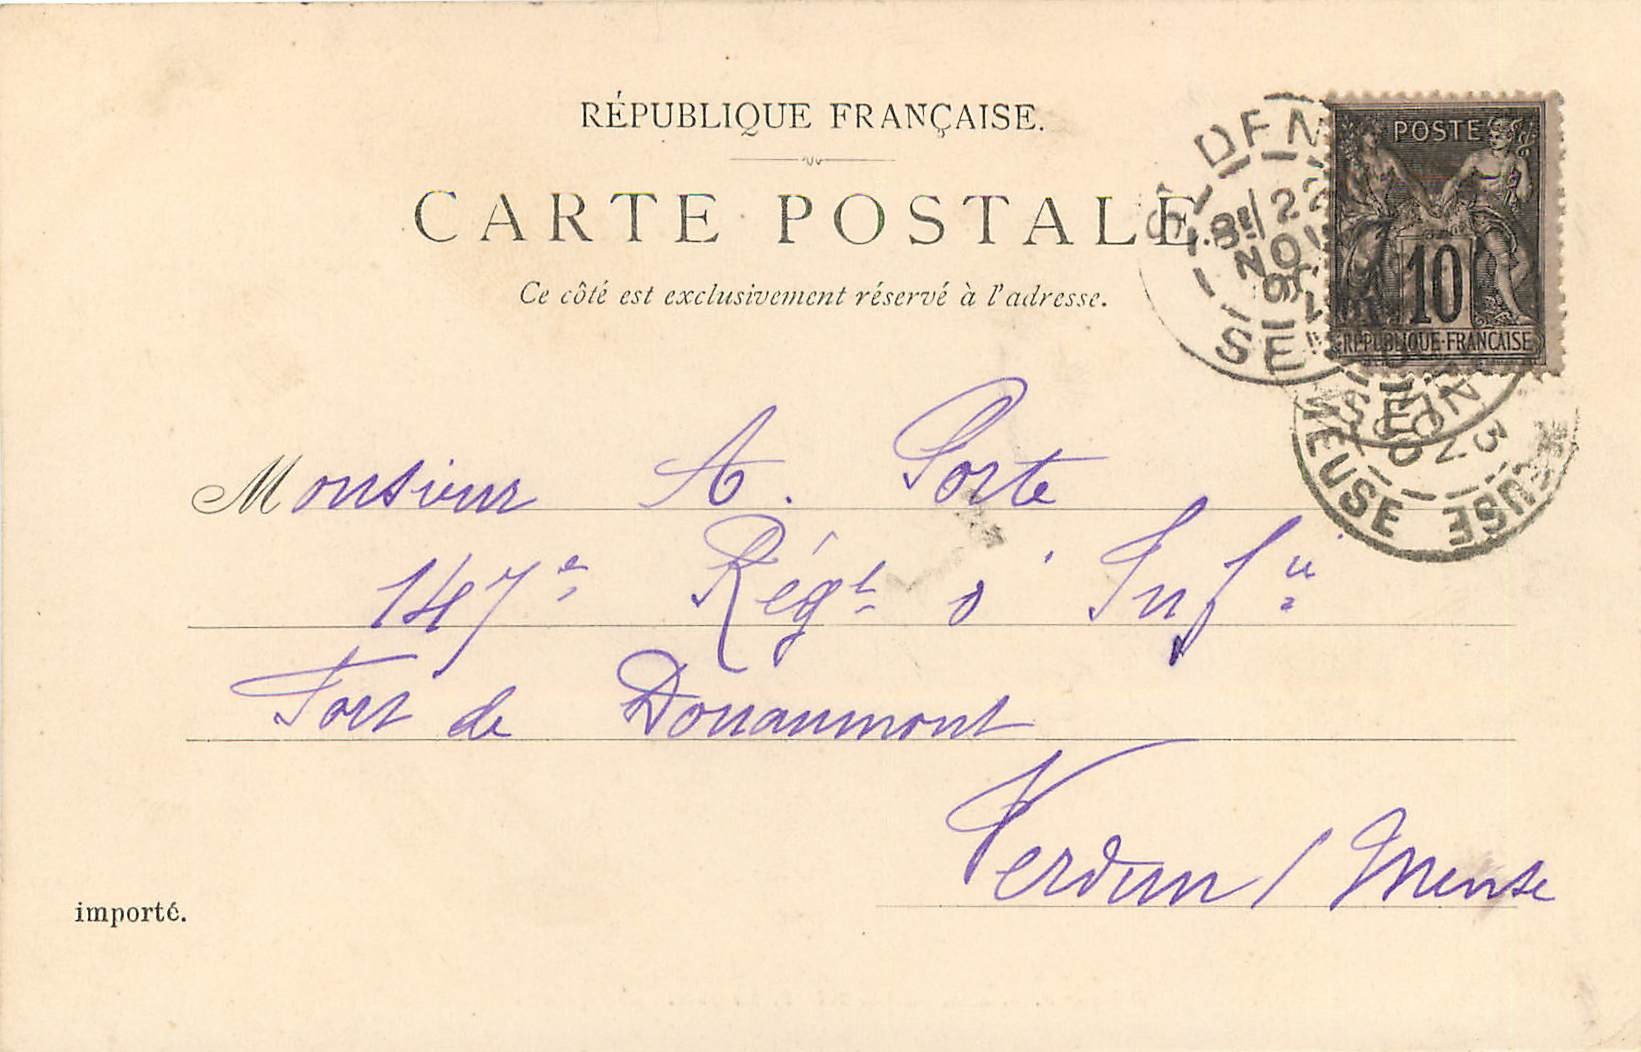 RÉPUBLIQUE FRANÇAISE.
CARTE POSTALE
Ce côté est exclusivement réservé à l'adresse.
POSTE
10
RÉPUBLIQUE FRANÇAISE
Sᵗ DEN
8ᴱ/22
NOV
SE
MEUSE MEUSE
Monsieur A. Porte
147ᵉ Régᵗ d'Infⁱᵉ
Fort de Douaumont
Verdun / Meuse
importé.